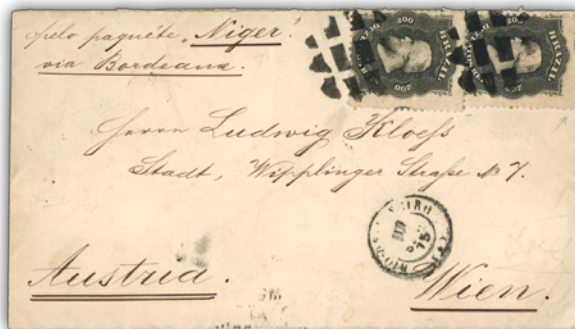 pelo paquéte „Niger“
via Bordeaux.
200 200
BRAZIL BRAZIL
200 200
Herrn Ludwig Kloess
Stadt, Wipplinger Straße No 7.
Austria.
Wien.